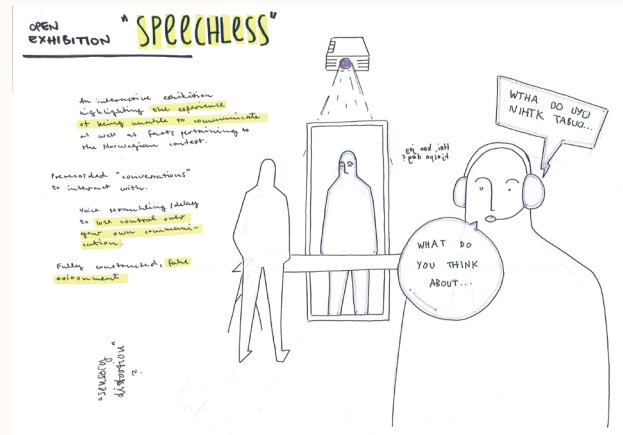 OPEN
EXHIBITION
"SPEECHLESS"
An interactive exibition
highlighting the experience
of being unable to communicate
as well as facts pertaining to
the Norwegian context.
Prerecorded "conversations"
to interact with.
Voice scrambling/delay
to lose control over
your own communi-
cation.
Fully constructed, fake
evironment
"sensory
distortion"
WTHA DO UYO
NIHTK TABUO...
WHAT DO
YOU THINK
ABOUT...